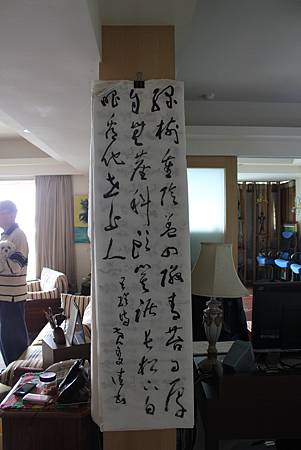 綠樹重陰蓋四鄰青苔日厚
自無塵科頭箕踞長松下白
眼看他世上人
王維詩